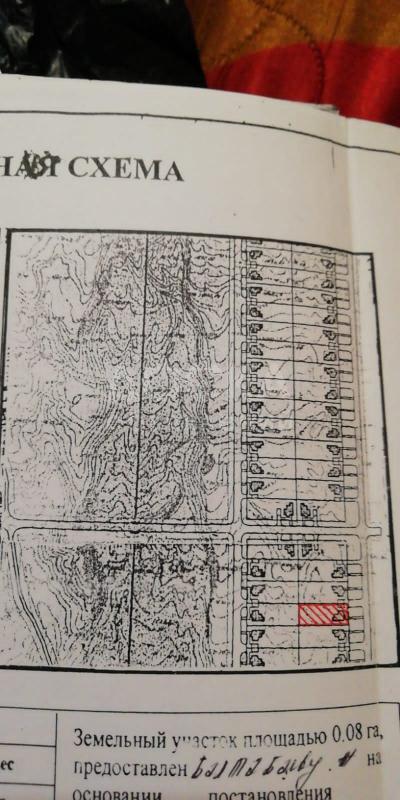 НАЯ СХЕМА
ес
Земельный участок площадью 0.08 га,
предоставлен на
основании постановления